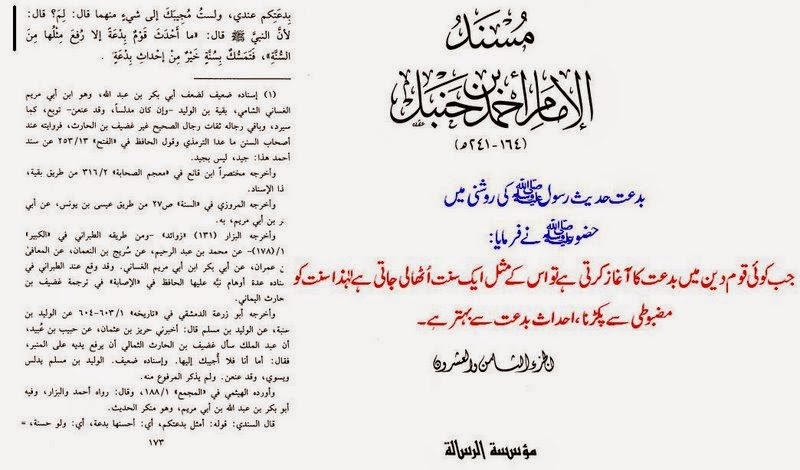 بِدعَتِكم عندي، ولستُ مُجِيبَكَ إلى شيءٍ منهما قال: لِمَ؟ قال:
لأنَّ النبيَّ ﷺ قال: «ما أَحْدَثَ قَوْمٌ بِدْعَةً إلا رُفِعَ مِثْلُها مِنَ
السُّنَّةِ»، فَتَمَسُّكٌ بِسُنَّةٍ خَيْرٌ مِنْ إحْداثِ بِدْعَةٍ.
(١) إسناده ضعيف لضعف أبي بكر بن عبد الله، وهو ابن أبي مريم
الغساني الشامي، بقية بن الوليد -وإن كان مدلساً، وقد عنعن- توبع، كما
سيرد، وباقي رجاله ثقات رجال الصحيح غير غضيف بن الحارث، فروايته عند
أصحاب السنن ما عدا الترمذي وقول الحافظ في «الفتح» ٢٥٣/١٣ عن سند
أحمد هذا: جيد، ليس بجيد.
وأخرجه مختصراً ابن قانع في «معجم الصحابة» ٣١٦/٢ من طريق بقية،
ذا الإسناد.
وأخرجه المروزي في «السنة» ص٢٧ من طريق عيسى بن يونس، عن أبي
بن أبي مريم، به.
وأخرجه البزار (١٣١) «زوائد» -ومن طريقه الطبراني في «الكبير»
(١٧٨)/١- عن محمد بن عبد الرحيم، عن سُريج بن النعمان، عن المعافى
بن عمران، عن أبي بكر ابن أبي مريم الغساني. وقد وقع عند الطبراني في
ناده عدة أوهام نبَّه عليها الحافظ في «الإصابة» في ترجمة غضيف بن
حارث اليماني.
وأخرجه أبو زرعة الدمشقي في «تاريخه» ٦٠٣/١-٦٠٤ عن الوليد بن
عتبة، عن الوليد بن مسلم قال: أخبرني حريز بن عثمان، عن حبيب بن عُبيد،
أن عبد الملك سأل غضيف بن الحارث الثمالي أن يرفع يديه على المنبر،
فقال: أما أنا فلا أُجيبك إليها. وإسناده ضعيف. الوليد بن مسلم يدلس
ويسوي، وقد عنعن. ولم يذكر المرفوع منه.
وأورده الهيثمي في «المجمع» ١٨٨/١، وقال: رواه أحمد والبزار، وفيه
أبو بكر بن عبد الله بن أبي مريم، وهو منكر الحديث.
قال السندي: قوله: أمثل بدعتكم، أي: أحسنها بدعة، أي: ولو حسنة، =
١٧٣
مُسْنَدُ
الإمام أحمد بن حنبل
(١٦٤-٢٤١هـ)
بدعت حدیث رسول ﷺ کی روشنی میں
حضور ﷺ نے فرمایا:
جب کوئی قوم دین میں بدعت کا آغاز کرتی ہے تو اس کے مثل ایک سنت اُٹھالی جاتی ہے لہٰذا سنت کو
مضبوطی سے پکڑنا، احداث بدعت سے بہتر ہے۔
الجزء الثامن والعشرون
مؤسسة الرسالة